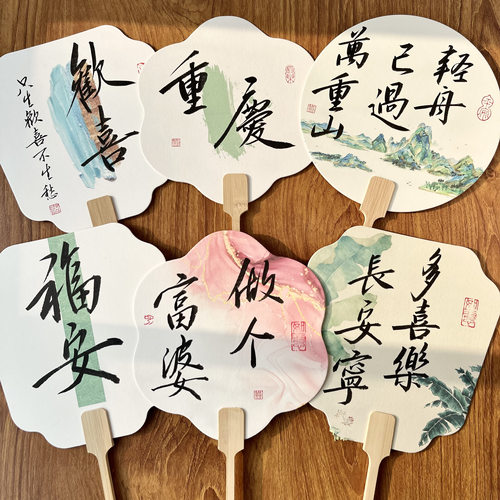 歡喜
只生歡喜不生愁
重慶
輕舟
已過
萬重山
福安
做个
富婆
多喜樂
長安寧